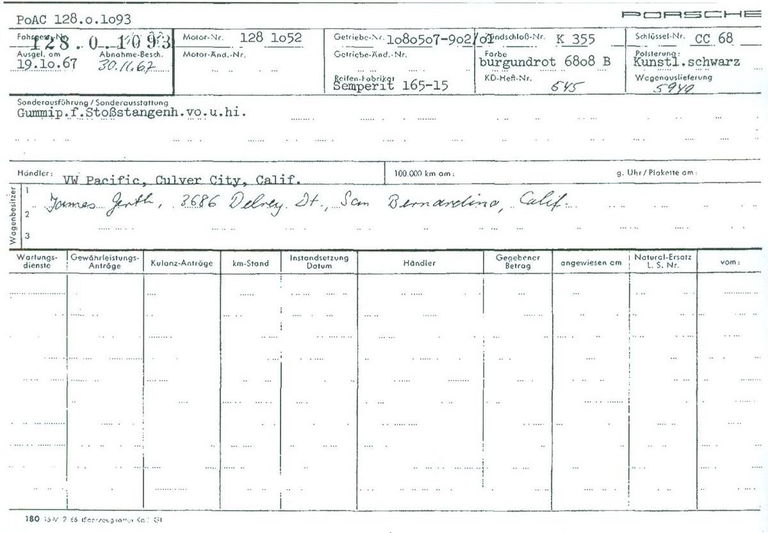 PoAC 128.o.1o93
PORSCHE
128.0.1093
Motor-Nr. 128 1o52
Getriebe-Nr. 1o8o5o7-9o2/o1
Zündschloß-Nr. K 355
Schlüssel-Nr. CC 68
Ausgel. am Abnahme-Besch.
19.1o.67 30.11.67
Motor-Änd.-Nr.
Getriebe-Änd.-Nr.
Farbe
burgundrot 68o8 B
Polsterung:
Kunstl.schwarz
Reifen-Fabrikat
Semperit 165-15
KD-Heft-Nr. 645
Wagenauslieferung
5940
Sonderausführung / Sonderausstattung
Gummip.f.Stoßstangenh.vo.u.hi.
Händler: VW Pacific, Culver City, Calif.
100.000 km am:
g. Uhr / Plakette am:
Wagenbesitzer
1 James 3686 Delrey San Bernardino, Calif.
2
3
Wartungsdienste
Gewährleistungs-Anträge
Kulanz-Anträge
km-Stand
Instandsetzung Datum
Händler
Gegebener Betrag
angewiesen am
Natural-Ersatz L. S. Nr.
vom:
180